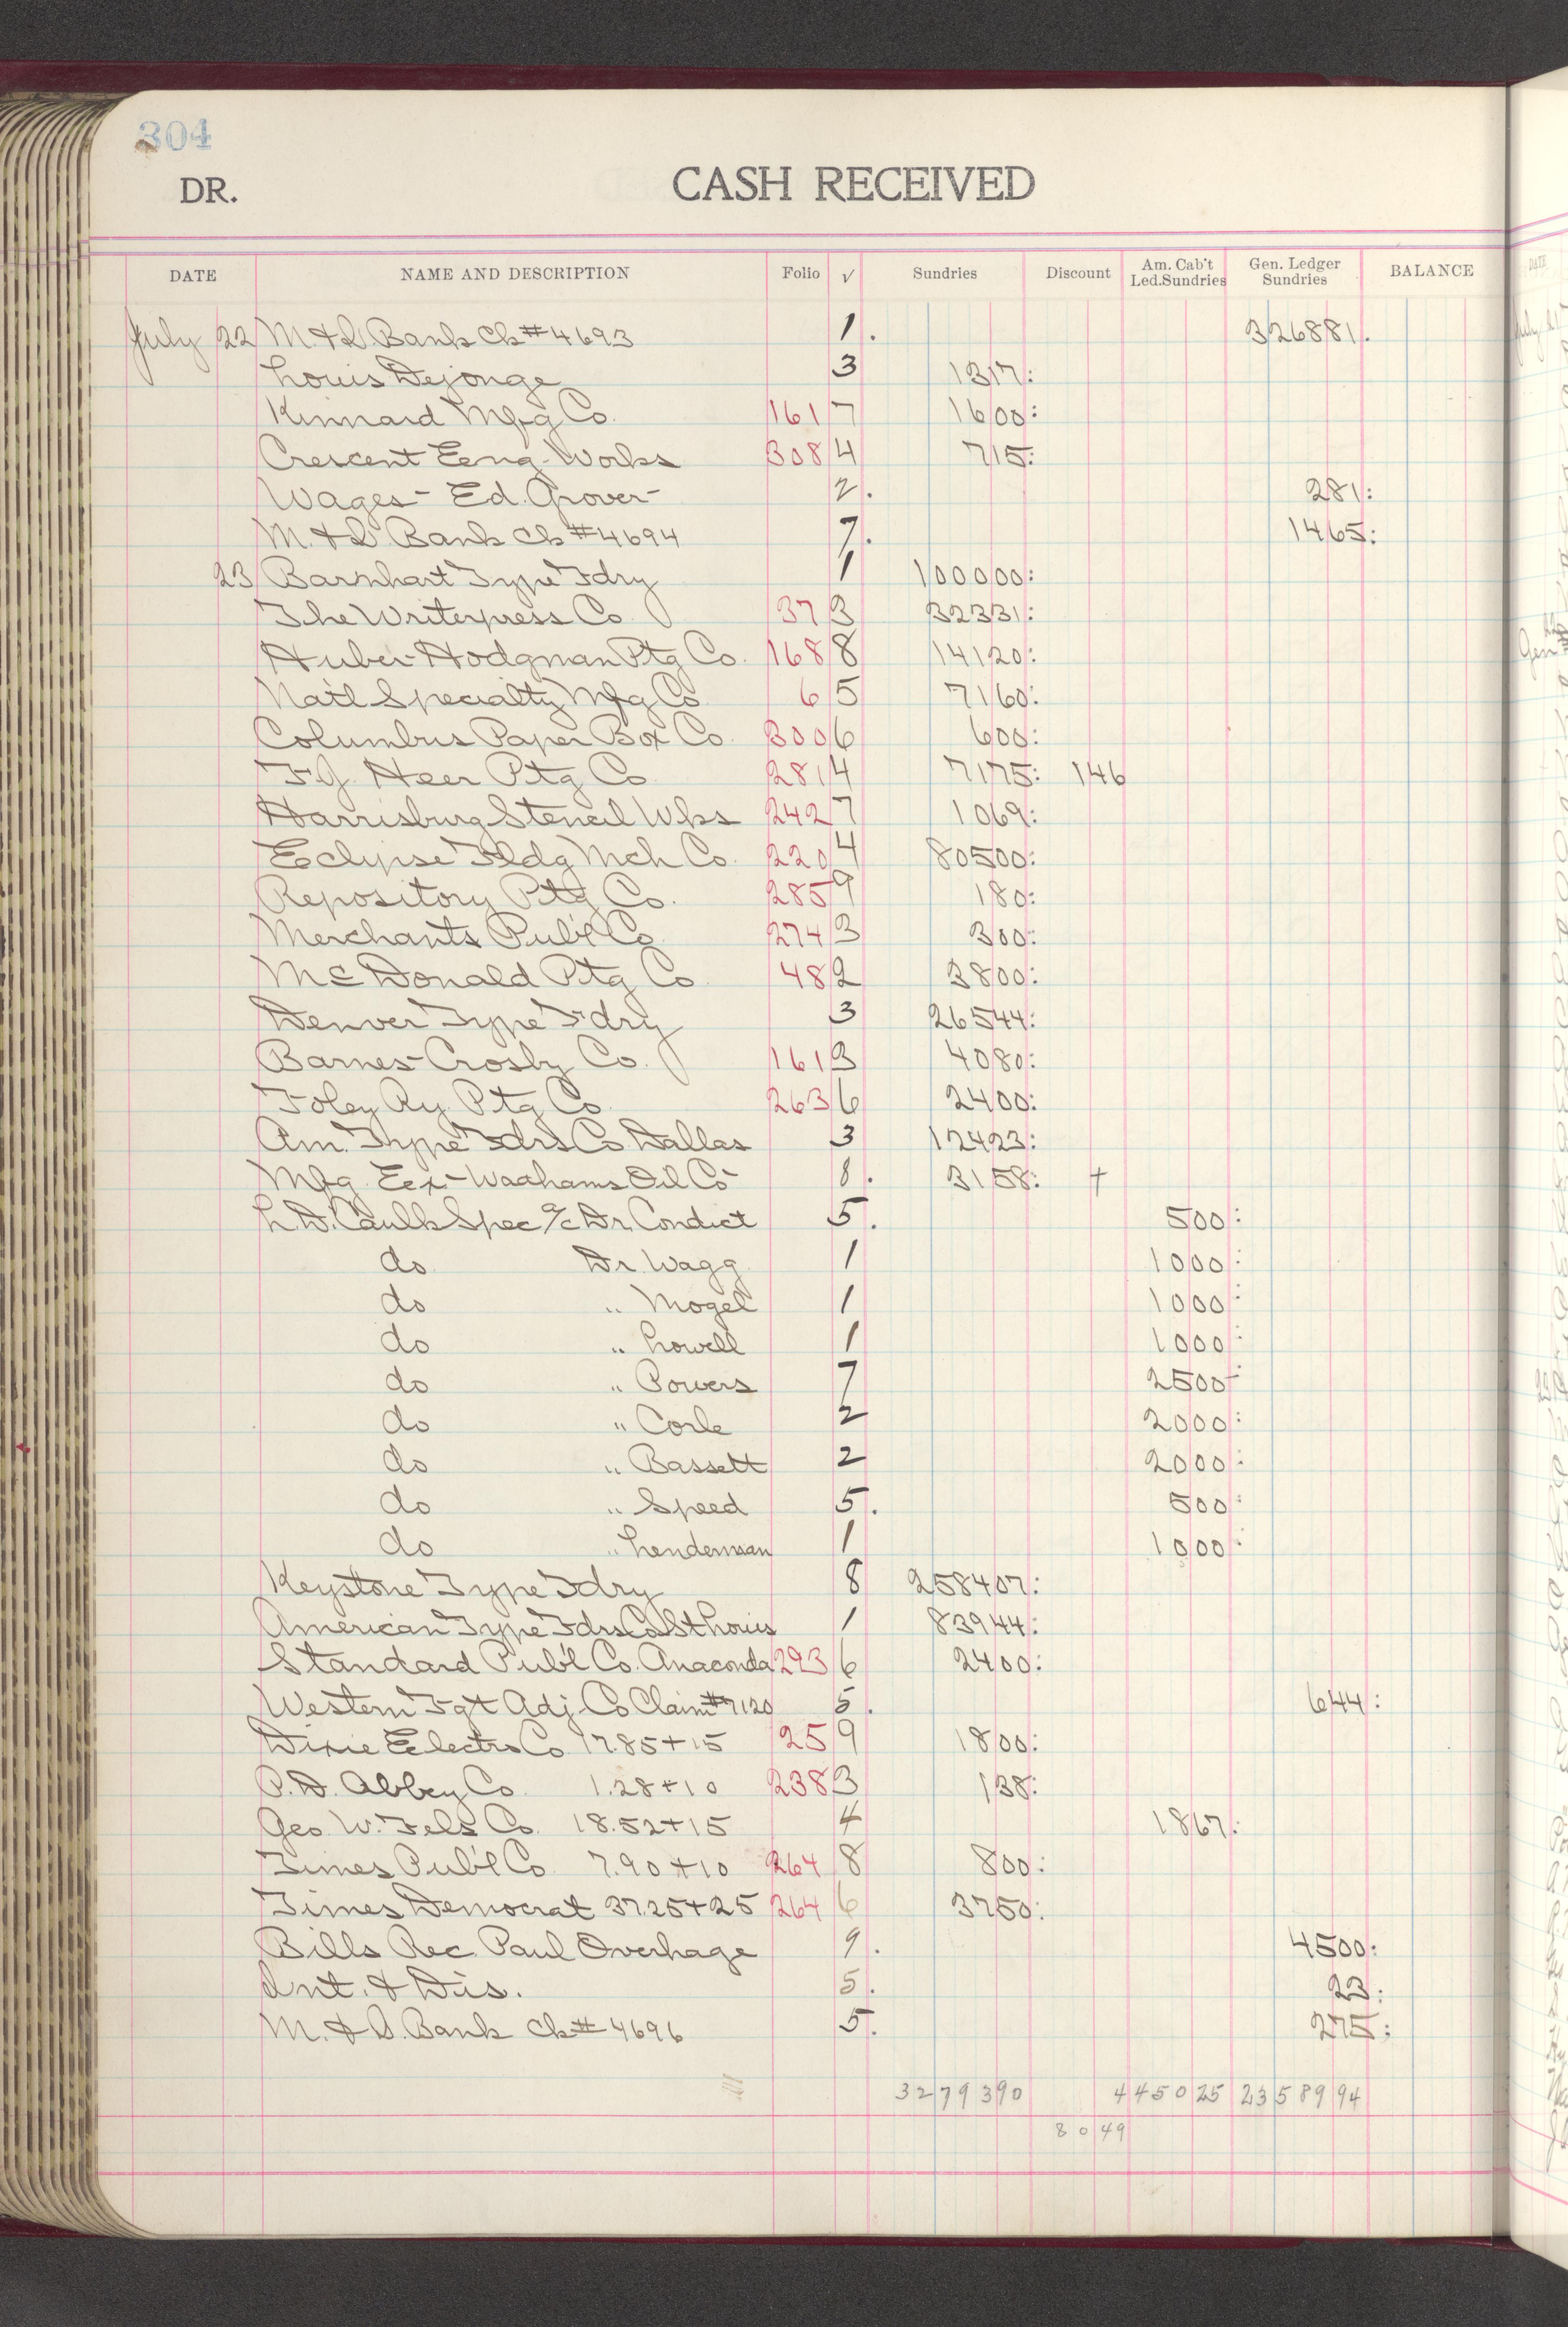 304
DR. CASH RECEIVED
DATE NAME AND DESCRIPTION Folio √ Sundries Discount Am. Cab't Led.Sundries Gen. Ledger Sundries BALANCE
July 22 M. & D. Bank Ck #4693 1. 3268 81.
Louis Dejonge 3 13 17:
Kinnard Mfg Co. 161 7 16 00:
Crescent Eeng. Works 308 4 7 15:
Wages - Ed. Grover - 2. 2 81:
M. & D. Bank Ck #4694 7. 14 65:
23 Barnhart Type Fdry 1 1000 00:
The Writerpress Co. 37 3 323 31:
Huber-Hodgman Ptg Co. 168 8 141 20:
Nat'l Specialty Mfg Co 6 5 71 60:
Columbus Paper Box Co. 300 6 6 00:
F. J. Heer Ptg Co 281 4 71 75: 1 46
Harrisburg Stencil Wks 242 7 10 69:
Eclipse Fldg Mch Co. 220 4 805 00:
Repository Ptg Co. 285 9 1 80:
Merchants Pub'l Co 274 3 3 00:
McDonald Ptg Co 48 2 38 00:
Denver Type Fdry 3 265 44:
Barnes-Crosby Co. 161 3 40 80:
Foley Ry. Ptg Co 263 6 24 00:
Am. Type Fdrs Co Dallas 3 124 23:
Mfg. Eex - Wadhams Oil Co - 8. 31 58: +
L. D. Caulk Spec a/c Dr. Condict 5. 5 00:
do Dr. Wagg 1 10 00:
do " Mogel 1 10 00:
do " Lowell 1 10 00:
do " Powers 7 25 00
do " Corle 2 20 00:
do " Bassett 2 20 00:
do " Speed 5. 5 00:
do " Lenderman 1 10 00:
Keystone Type Fdry 8 2584 07:
American Type Fdrs Co St Louis 1 839 44:
Standard Pub'l Co. Anaconda 293 6 24 00:
Western Fgt Adj. Co Claim #7120 5. 6 44:
Dixie Eelectro Co. 17.85+15 25 9 18 00:
P. D. Abbey Co. 1.28+10 238 3 1 38:
Geo. W. Fels Co. 18.52+15 4 18 67:
Times Pub'l Co. 7.90+10 264 8 8 00:
Times Democrat 37.25+25 264 6 37 50:
Bills Rec. Paul Overhage 9. 45 00:
Int. & Dis. 5. 23:
M. & D. Bank Ck# 4696 5. 2 75:
32793 90 4450 25 23589 94
80 49